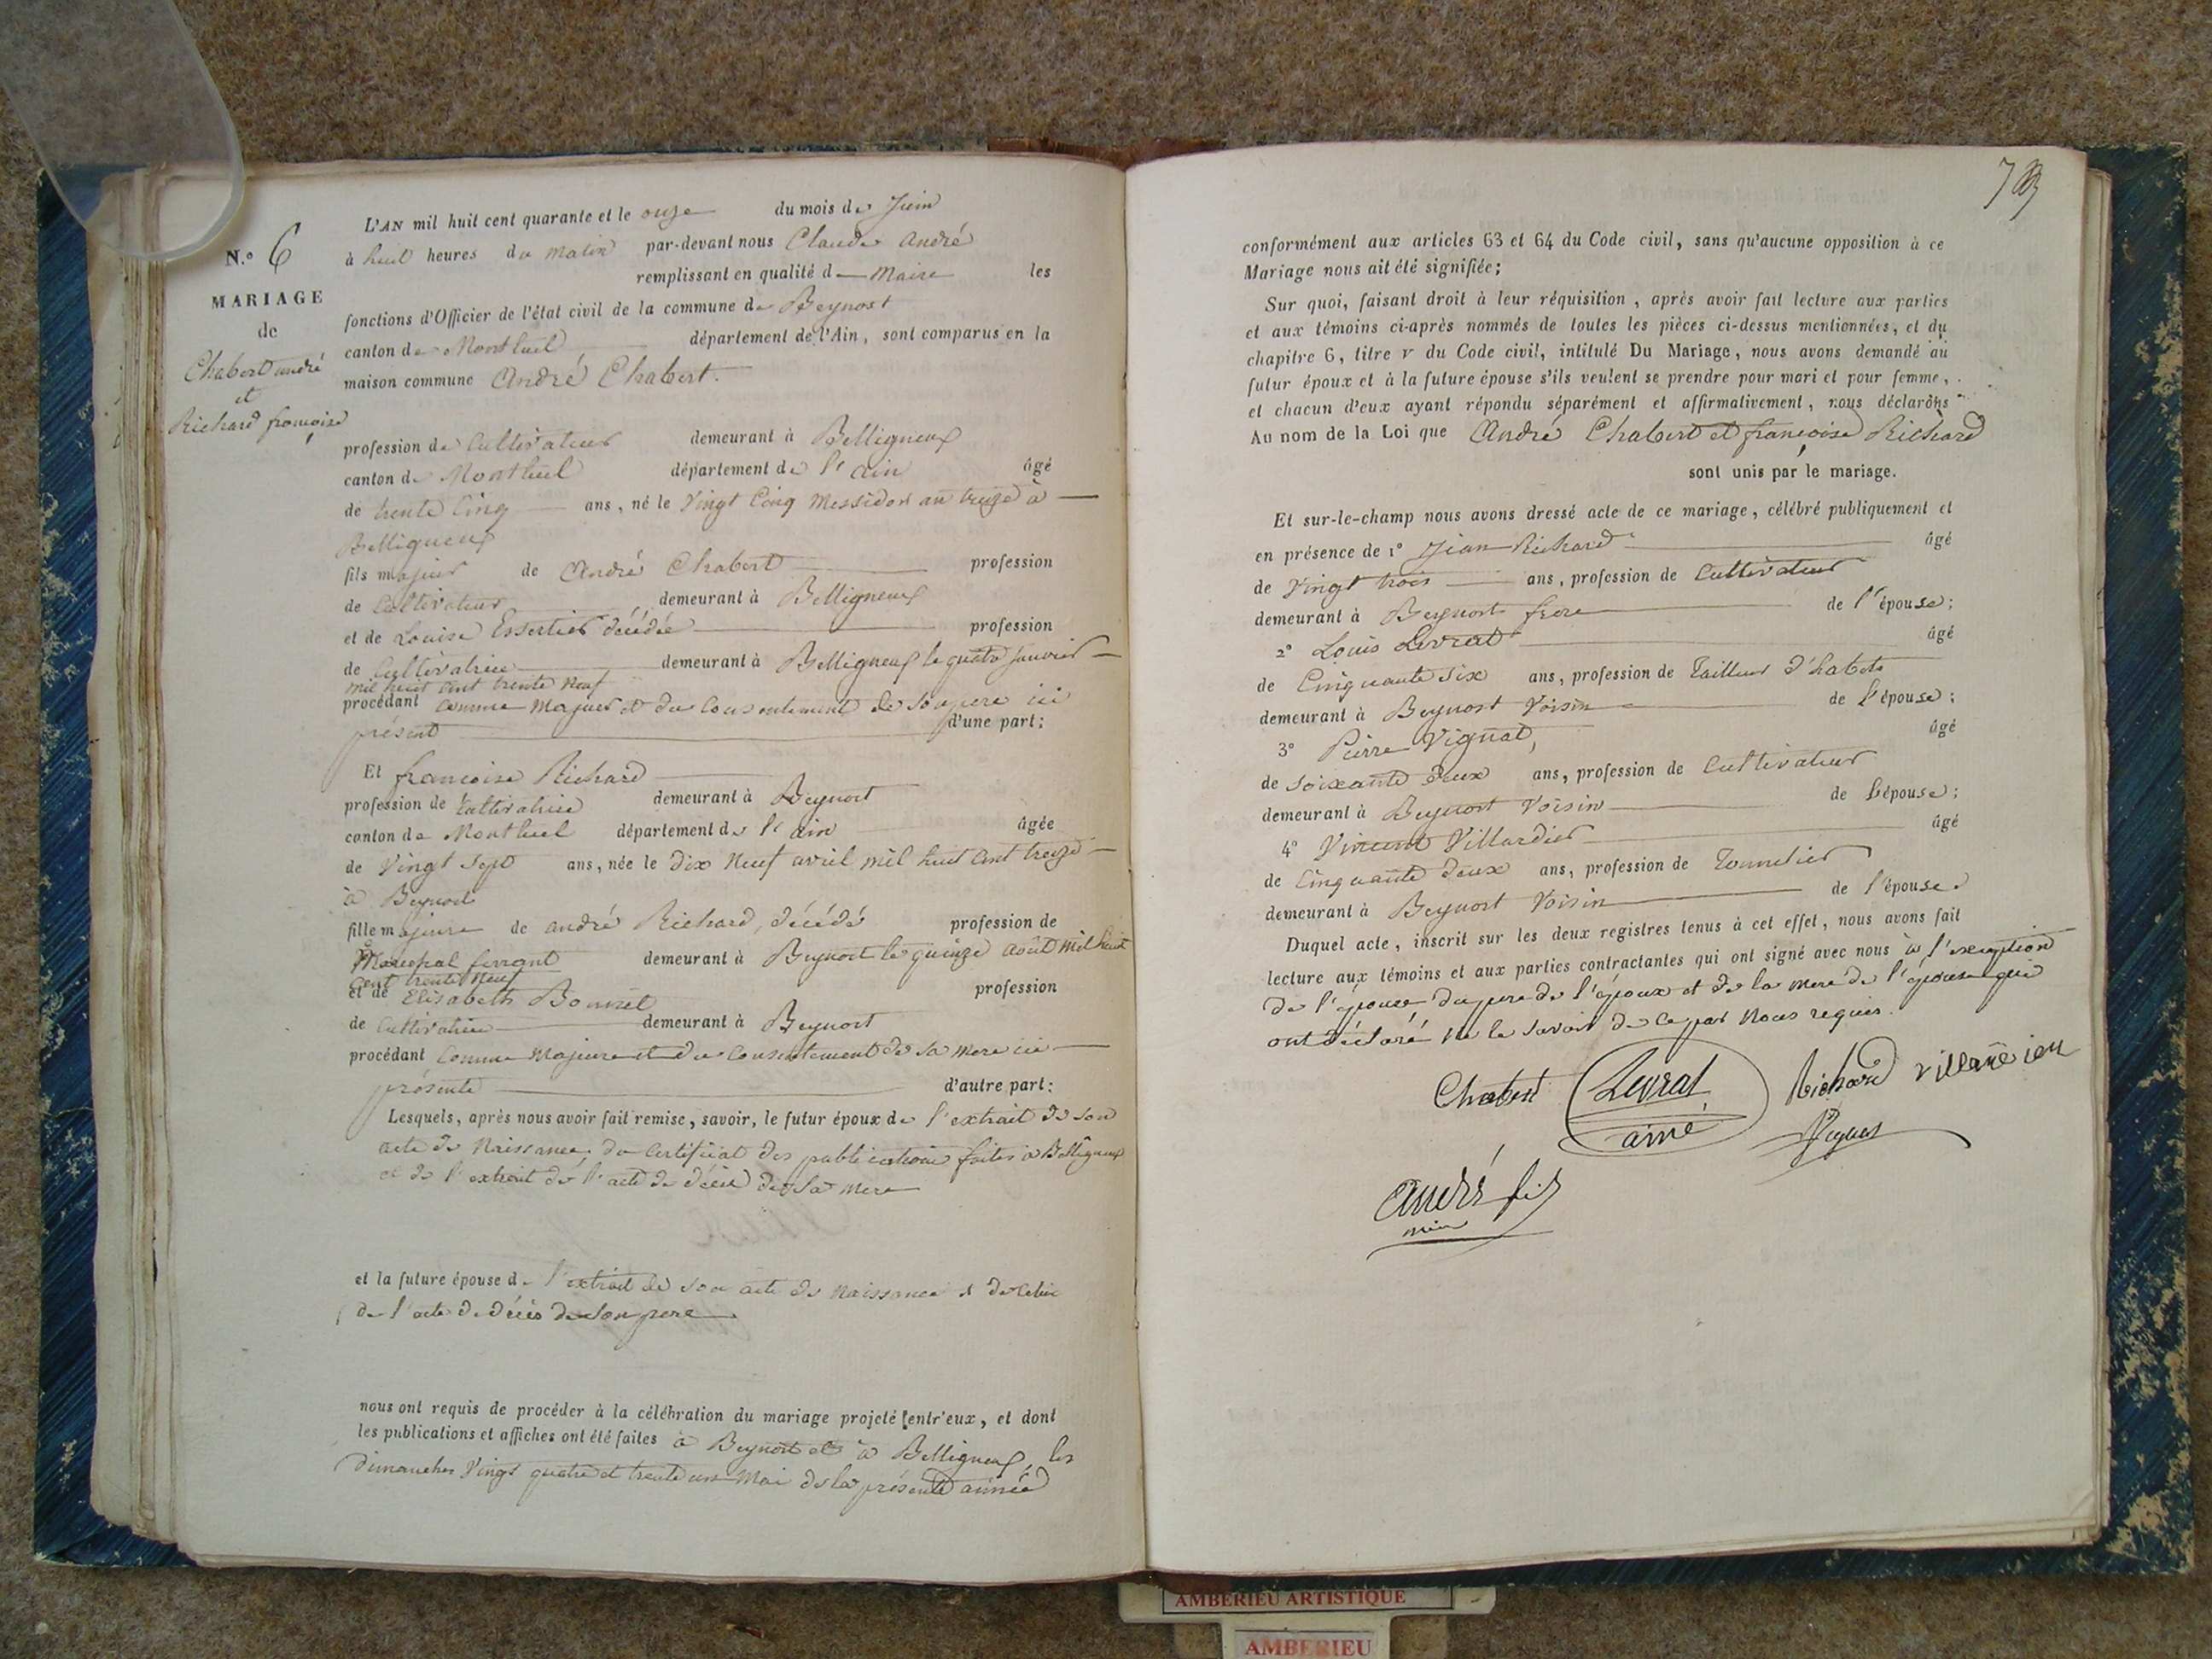 N.° 6
MARIAGE
de
Chabert andré
et
Richard françoise
L'AN mil huit cent quarante et le onze du mois de Juin
à huit heures du matin par-devant nous Claude André
remplissant en qualité de Maire les
fonctions d'Officier de l'état civil de la commune de Beynost
canton de Montluel département de l'Ain, sont comparus en la
maison commune André Chabert.
profession de Cultivateur demeurant à Belligneux
canton de Montluel département de l'ain âgé
de trente Cinq ans, né le Vingt Cinq Messidor an treize à
Belligneux
fils majeur de André Chabert profession
de Cultivateur demeurant à Belligneux
et de Louise Essertier décédée profession
de Cultivatrice demeurant à Belligneux le quatre Janvier
mil huit cent trente Neuf
procédant Comme Majeur et du Consentement de Son pere ici
présent d'une part;
Et françoise Richard
profession de Cultivatrice demeurant à Beynost
canton de Montluel département de l'ain âgée
de Vingt Sept ans, née le Dix Neuf avril mil huit Cent treize
à Beynost
fille majeure de andré Richard, décédé profession de
Marechal ferrant demeurant à Beynost le quinze août mil huit
Cent trente Neuf
et de Elisabeth Bonnet profession
de Cultivatrice demeurant à Beynost
procédant Comme Majeure et du Consentement de Sa mere ici
présente d'autre part:
Lesquels, après nous avoir fait remise, savoir, le futur époux de l'extrait de son
acte de Naissance, du Certificat des publications faites à Belligneux
et de l'extrait de l'acte de décès de Sa mere
et la future épouse de l'extrait de son acte de Naissance & de Celui
de l'acte de décès de Son pere
nous ont requis de procéder à la célébration du mariage projeté entr'eux, et dont
les publications et affiches ont été faites à Beynost et à Belligneux, les
Dimanches Vingt quatre et trente un Mai de la présente année
conformément aux articles 63 et 64 du Code civil, sans qu'aucune opposition à ce
Mariage nous ait été signifiée;
Sur quoi, faisant droit à leur réquisition, après avoir fait lecture aux parties
et aux témoins ci-après nommés de toutes les pièces ci-dessus mentionnées, et du
chapitre 6, titre v du Code civil, intitulé Du Mariage, nous avons demandé au
futur époux et à la future épouse s'ils veulent se prendre pour mari et pour femme,
et chacun d'eux ayant répondu séparément et affirmativement, nous déclarons
Au nom de la Loi que André Chabert et françoise Richard
sont unis par le mariage.
Et sur-le-champ nous avons dressé acte de ce mariage, célébré publiquement et
en présence de 1° Jean Richard âgé
de Vingt trois ans, profession de Cultivateur
demeurant à Beynost frere de l'épouse;
2° Louis Levrat âgé
de Cinquante Six ans, profession de Tailleur d'habits
demeurant à Beynost Voisin de l'épouse;
3° Pierre Vignat, âgé
de Soixante Deux ans, profession de Cultivateur
demeurant à Beynost Voisin de l'épouse;
4° Vincent Villardier âgé
de Cinquante Deux ans, profession de Tonnelier
demeurant à Beynost Voisin de l'épouse.
Duquel acte, inscrit sur les deux registres tenus à cet effet, nous avons fait
lecture aux témoins et aux parties contractantes qui ont signé avec nous à l'exception
De l'épouse, du pere de l'époux et de la mere de l'épouse qui
ont déclaré Ne le Savoir de ce par Nous requis.
Chabert Levrat Richard
aîné
André fils
AMBERIEU ARTISTIQUE
AMBERIEU